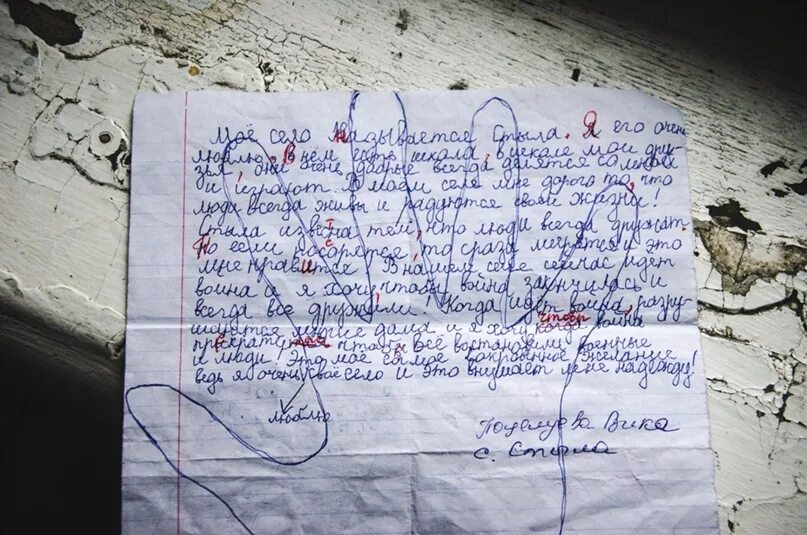 Моё село называется Стыла. Я его очень
люблю. В нём есть школа, в школе мои дру-
зья, они очень добрые всегда делятся со мной
и играют. В моём селе мне дорого то, что
люди всегда живы и радуются своей жизни!
Стыла известна тем, что люди всегда дружат.
Но если посорятся, то сразу мирятся и это
мне нравится. В нашем селе сейчас идет
война а я хочу чтобы война закнчилась и
всегда все дружили! Когда идёт война, разру-
шаются многие дама и я хочу когда война
чтобы
прекратится чтобы всё востановили военные
и люди! Это моё самое сокровенное желание
ведь я очень своё село и это внушает мне надежду!
люблю
Вика
с. Стыла